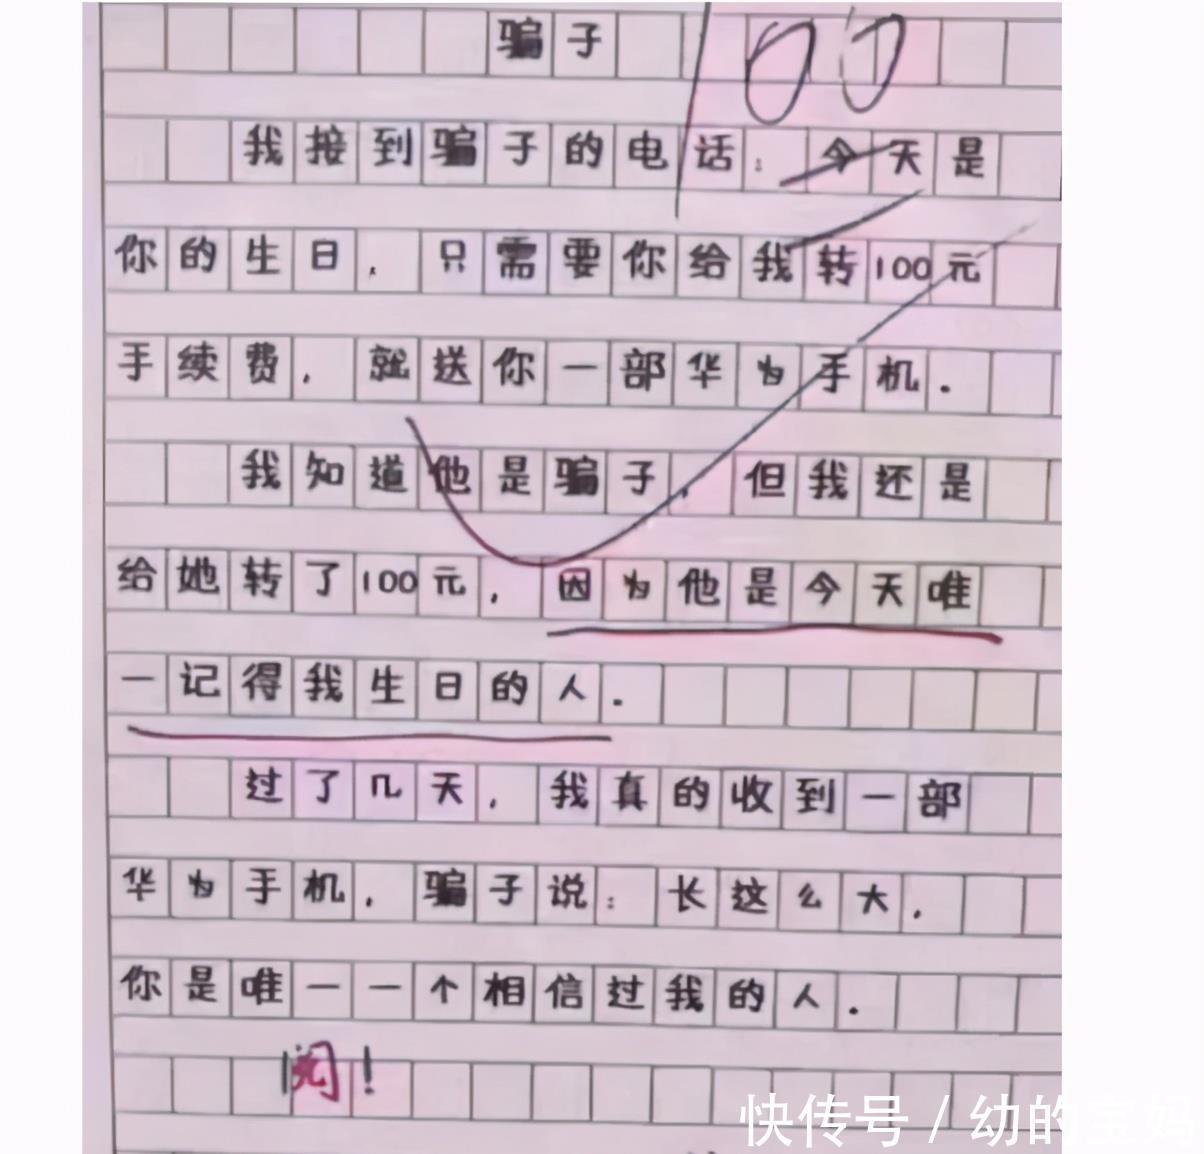 骗子
100
我接到骗子的电话：今天是
你的生日，只需要你给我转100元
手续费，就送你一部华为手机.
我知道他是骗子，但我还是
给她转了100元，因为他是今天唯
一记得我生日的人.
过了几天，我真的收到一部
华为手机，骗子说：长这么大，
你是唯一一个相信过我的人.
阅!
快传号/幼的宝妈